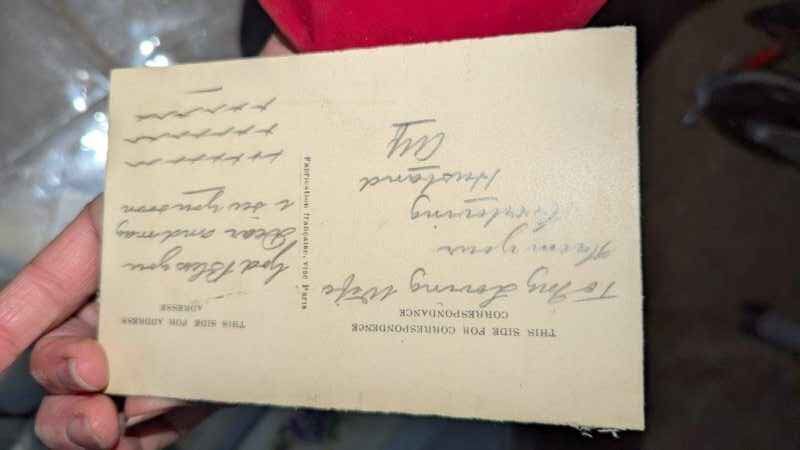 THIS SIDE FOR CORRESPONDENCE
CORRESPONDANCE
To My Loving Wife
From your
Everloving
Husband
Alf
Fabrication française, visé Paris
THIS SIDE FOR ADDRESS
ADRESSE
God Bless you
Dear and may
I see you soon
xxxxx
xxxxx
xxxxx